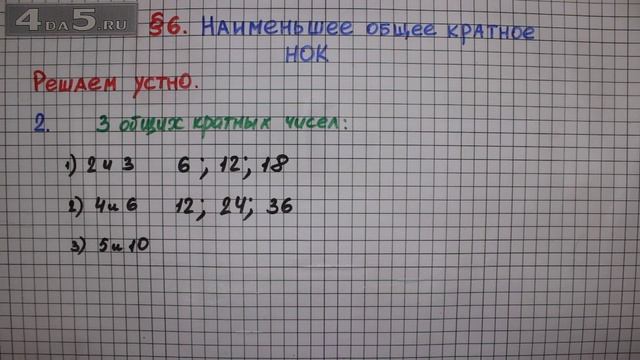 4DA5.RU §6. НАИМЕНЬШЕЕ ОБЩЕЕ КРАТНОЕ
НОК
РЕШАЕМ УСТНО.
2. 3 общих кратных чисел:
1) 2 и 3 6; 12; 18
2) 4 и 6 12; 24; 36
3) 5 и 10